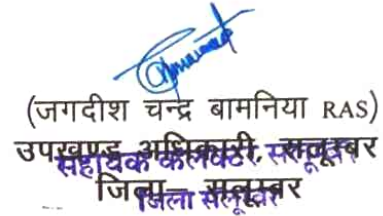 (जगदीश चन्द्र बामनिया RAS)
उपखण्ड अधिकारी, सलूम्बर
सहायक कलक्टर सलूम्बर
जिला सलूम्बर
जिला सलूम्बर